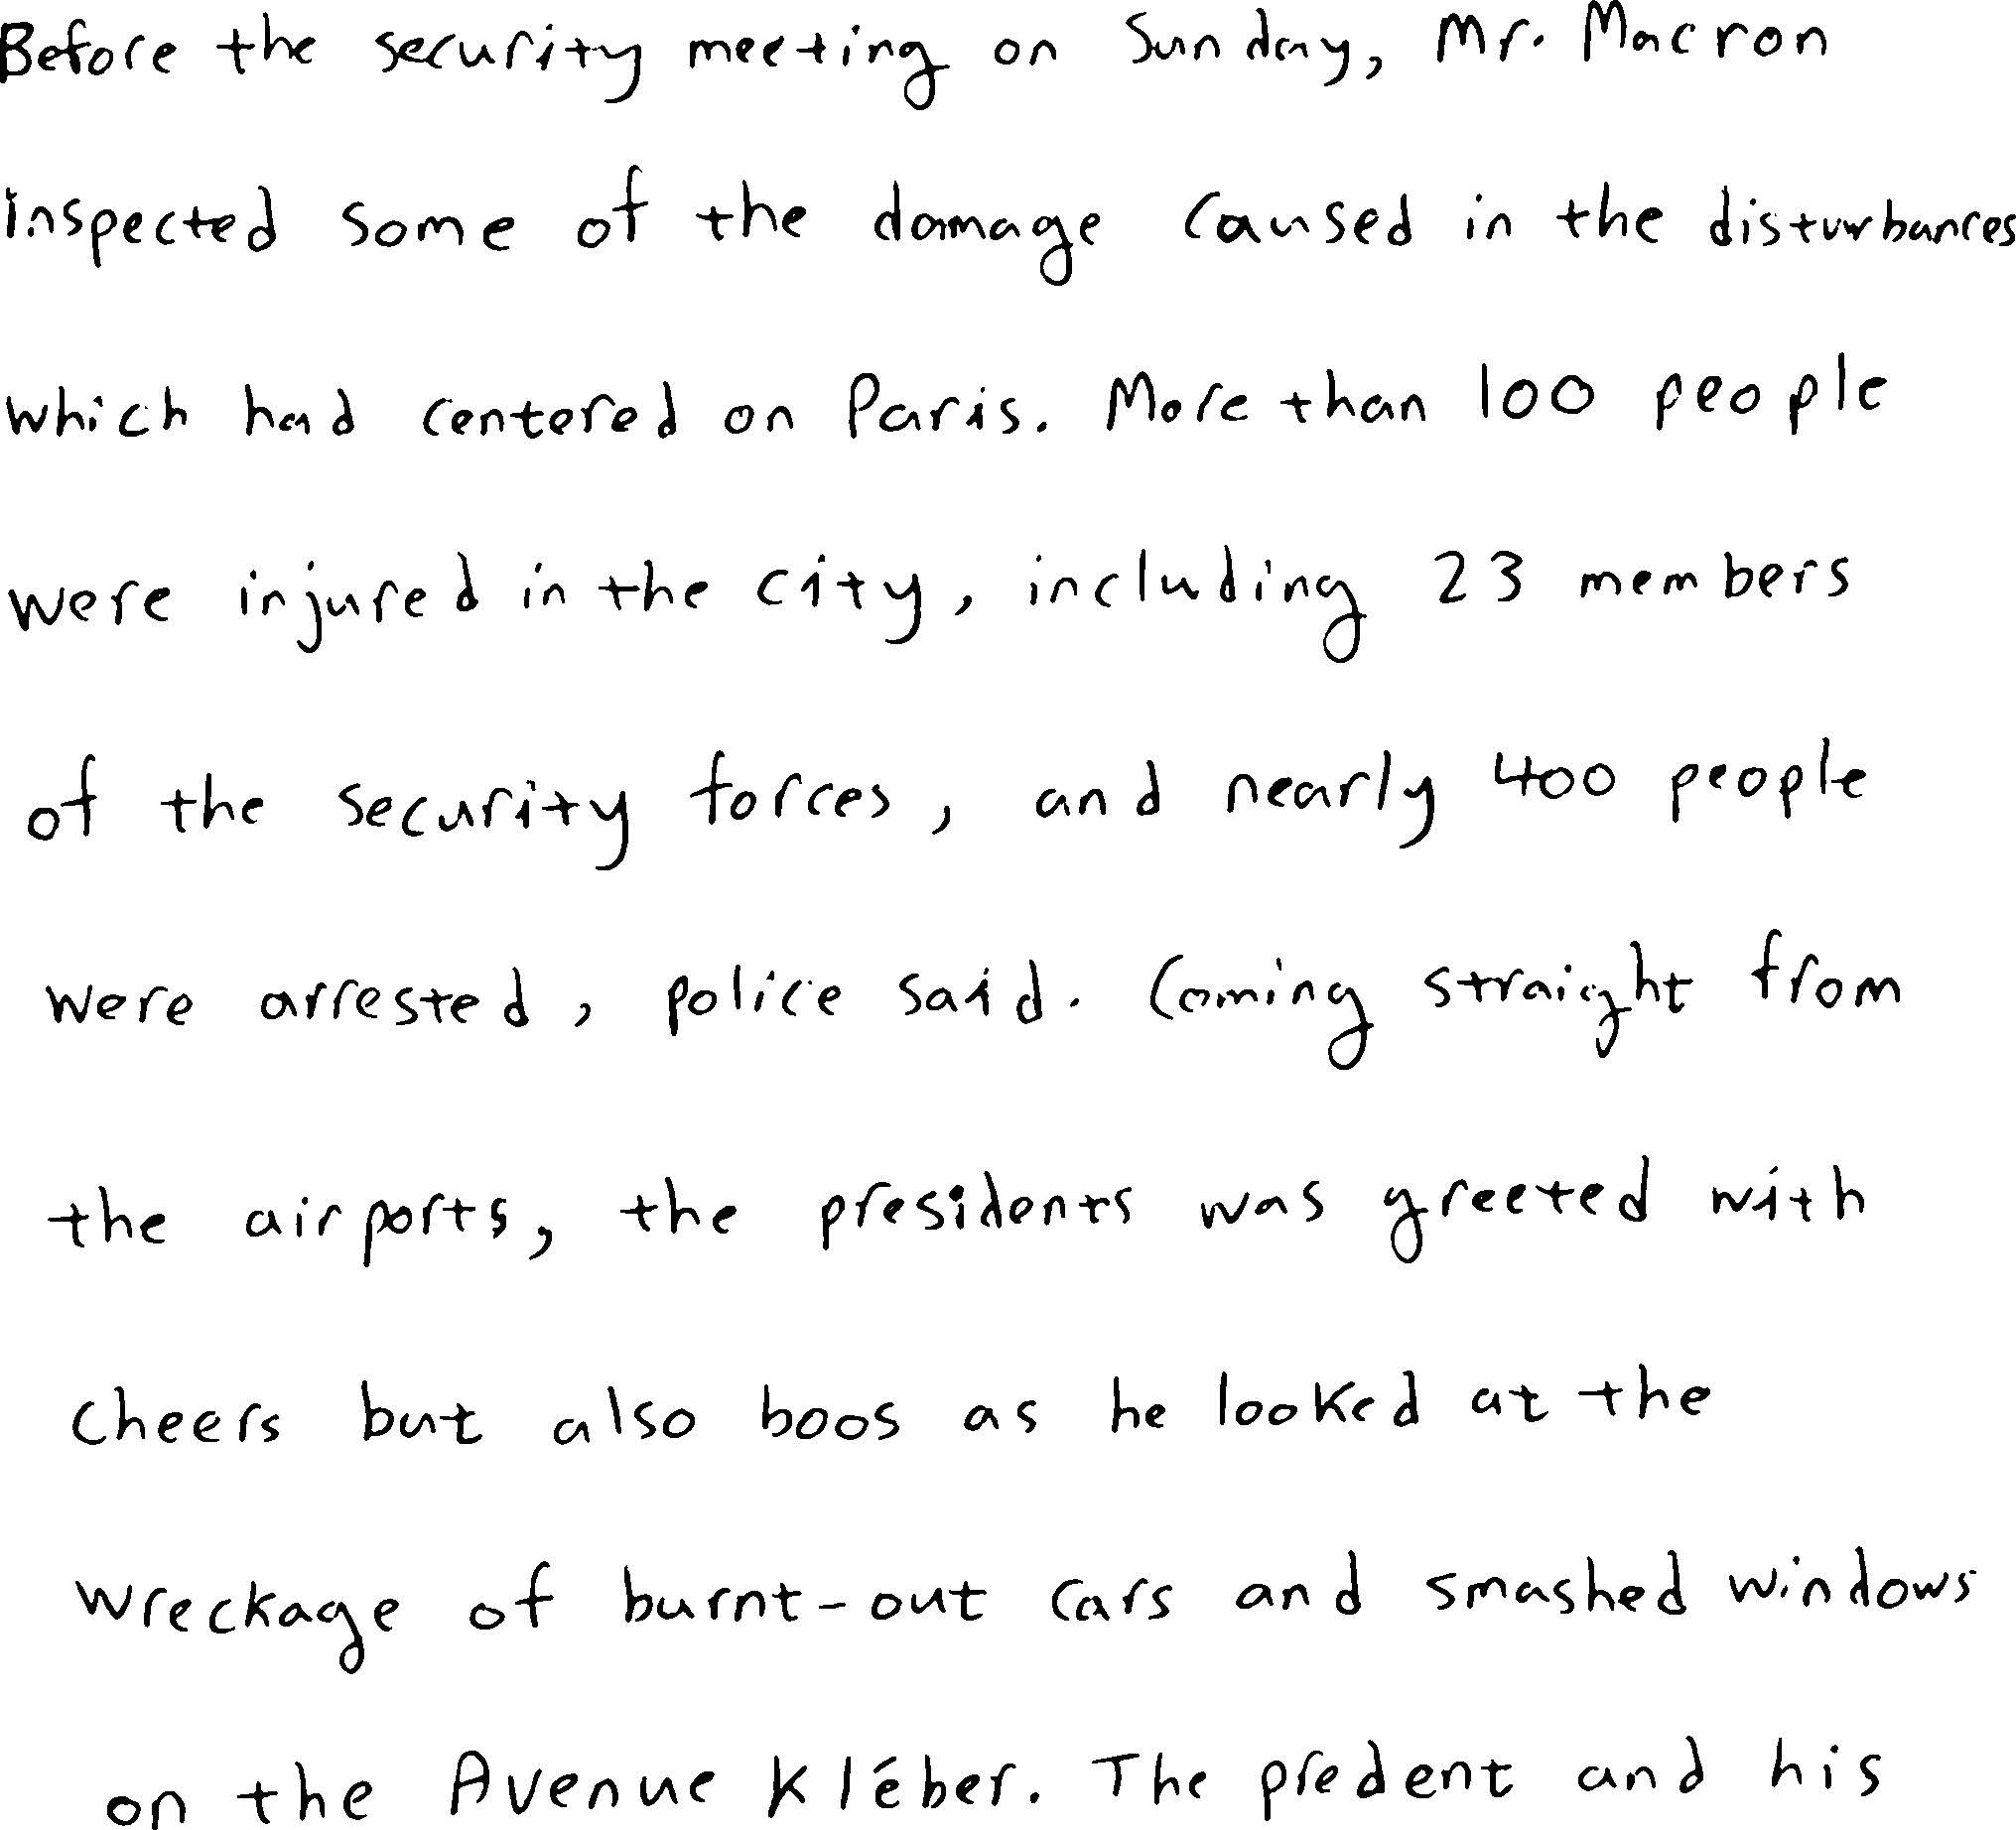 Before the security meeting on Sunday, Mr. Macron
inspected some of the damage caused in the disturbances
which had centered on Paris. More than 100 people
were injured in the city, including 23 members
of the security forces, and nearly 400 people
were arrested, police said. Coming straight from
the airports, the presidents was greeted with
cheers but also boos as he looked at the
wreckage of burnt-out cars and smashed windows
on the Avenue Kléber. The predent and his